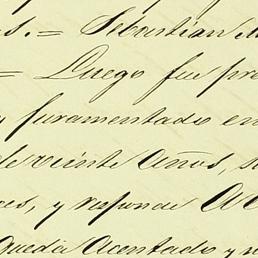 s. = Sebastian M
= Luego fue pre
y juramentado en
de veinte Años, s
es, y responde
queda Acentado y